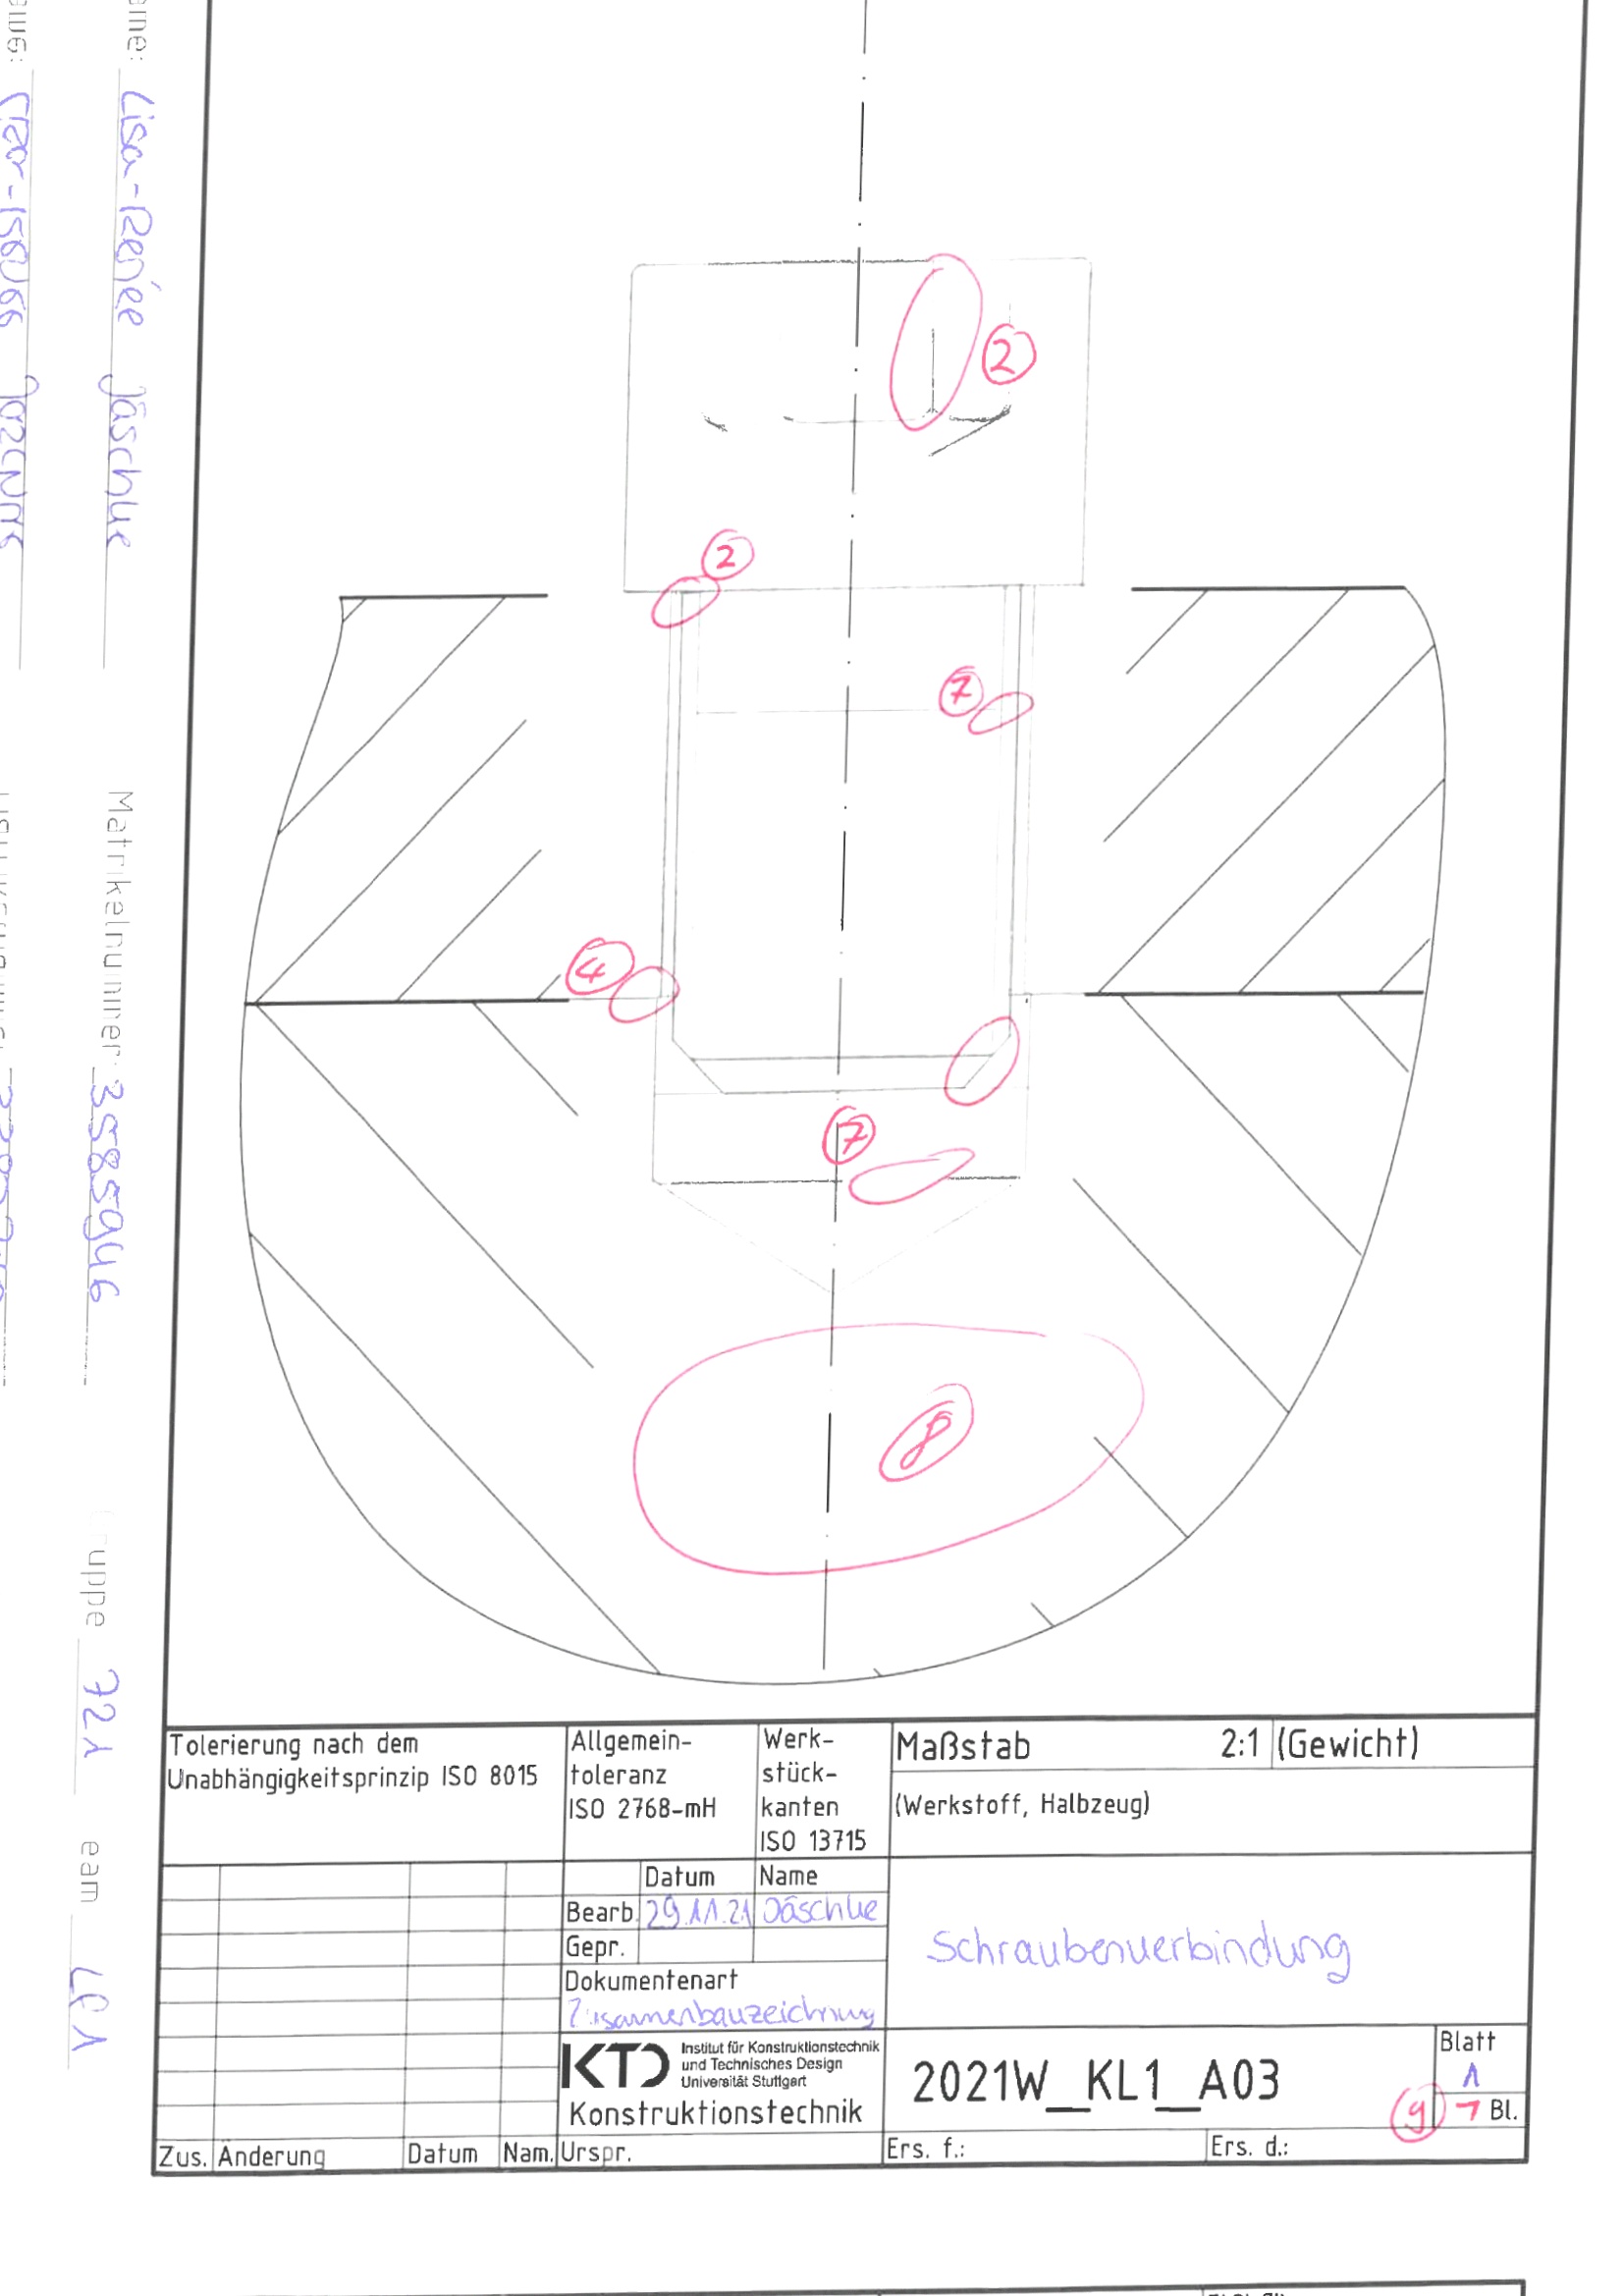 Lisa-Renée Jäschke
Matrikelnummer 3585946
721
2
2
7
4
7
8
Tolerierung nach dem
Unabhängigkeitsprinzip ISO 8015
Allgemein-
toleranz
ISO 2768-mH
Werk-
stück-
kanten
ISO 13715
Maßstab 2:1 (Gewicht)
(Werkstoff, Halbzeug)
Datum Name
Bearb. 29.11.21 Jäschke
Gepr.
Dokumentenart
Zusammenbauzeichnung
Schraubenverbindung
KTD Institut für Konstruktionstechnik
und Technisches Design
Universität Stuttgart
Konstruktionstechnik
2021W_KL1_A03
Blatt
1
9 1 Bl.
Zus. Änderung Datum Nam. Urspr. Ers. f.: Ers. d.: